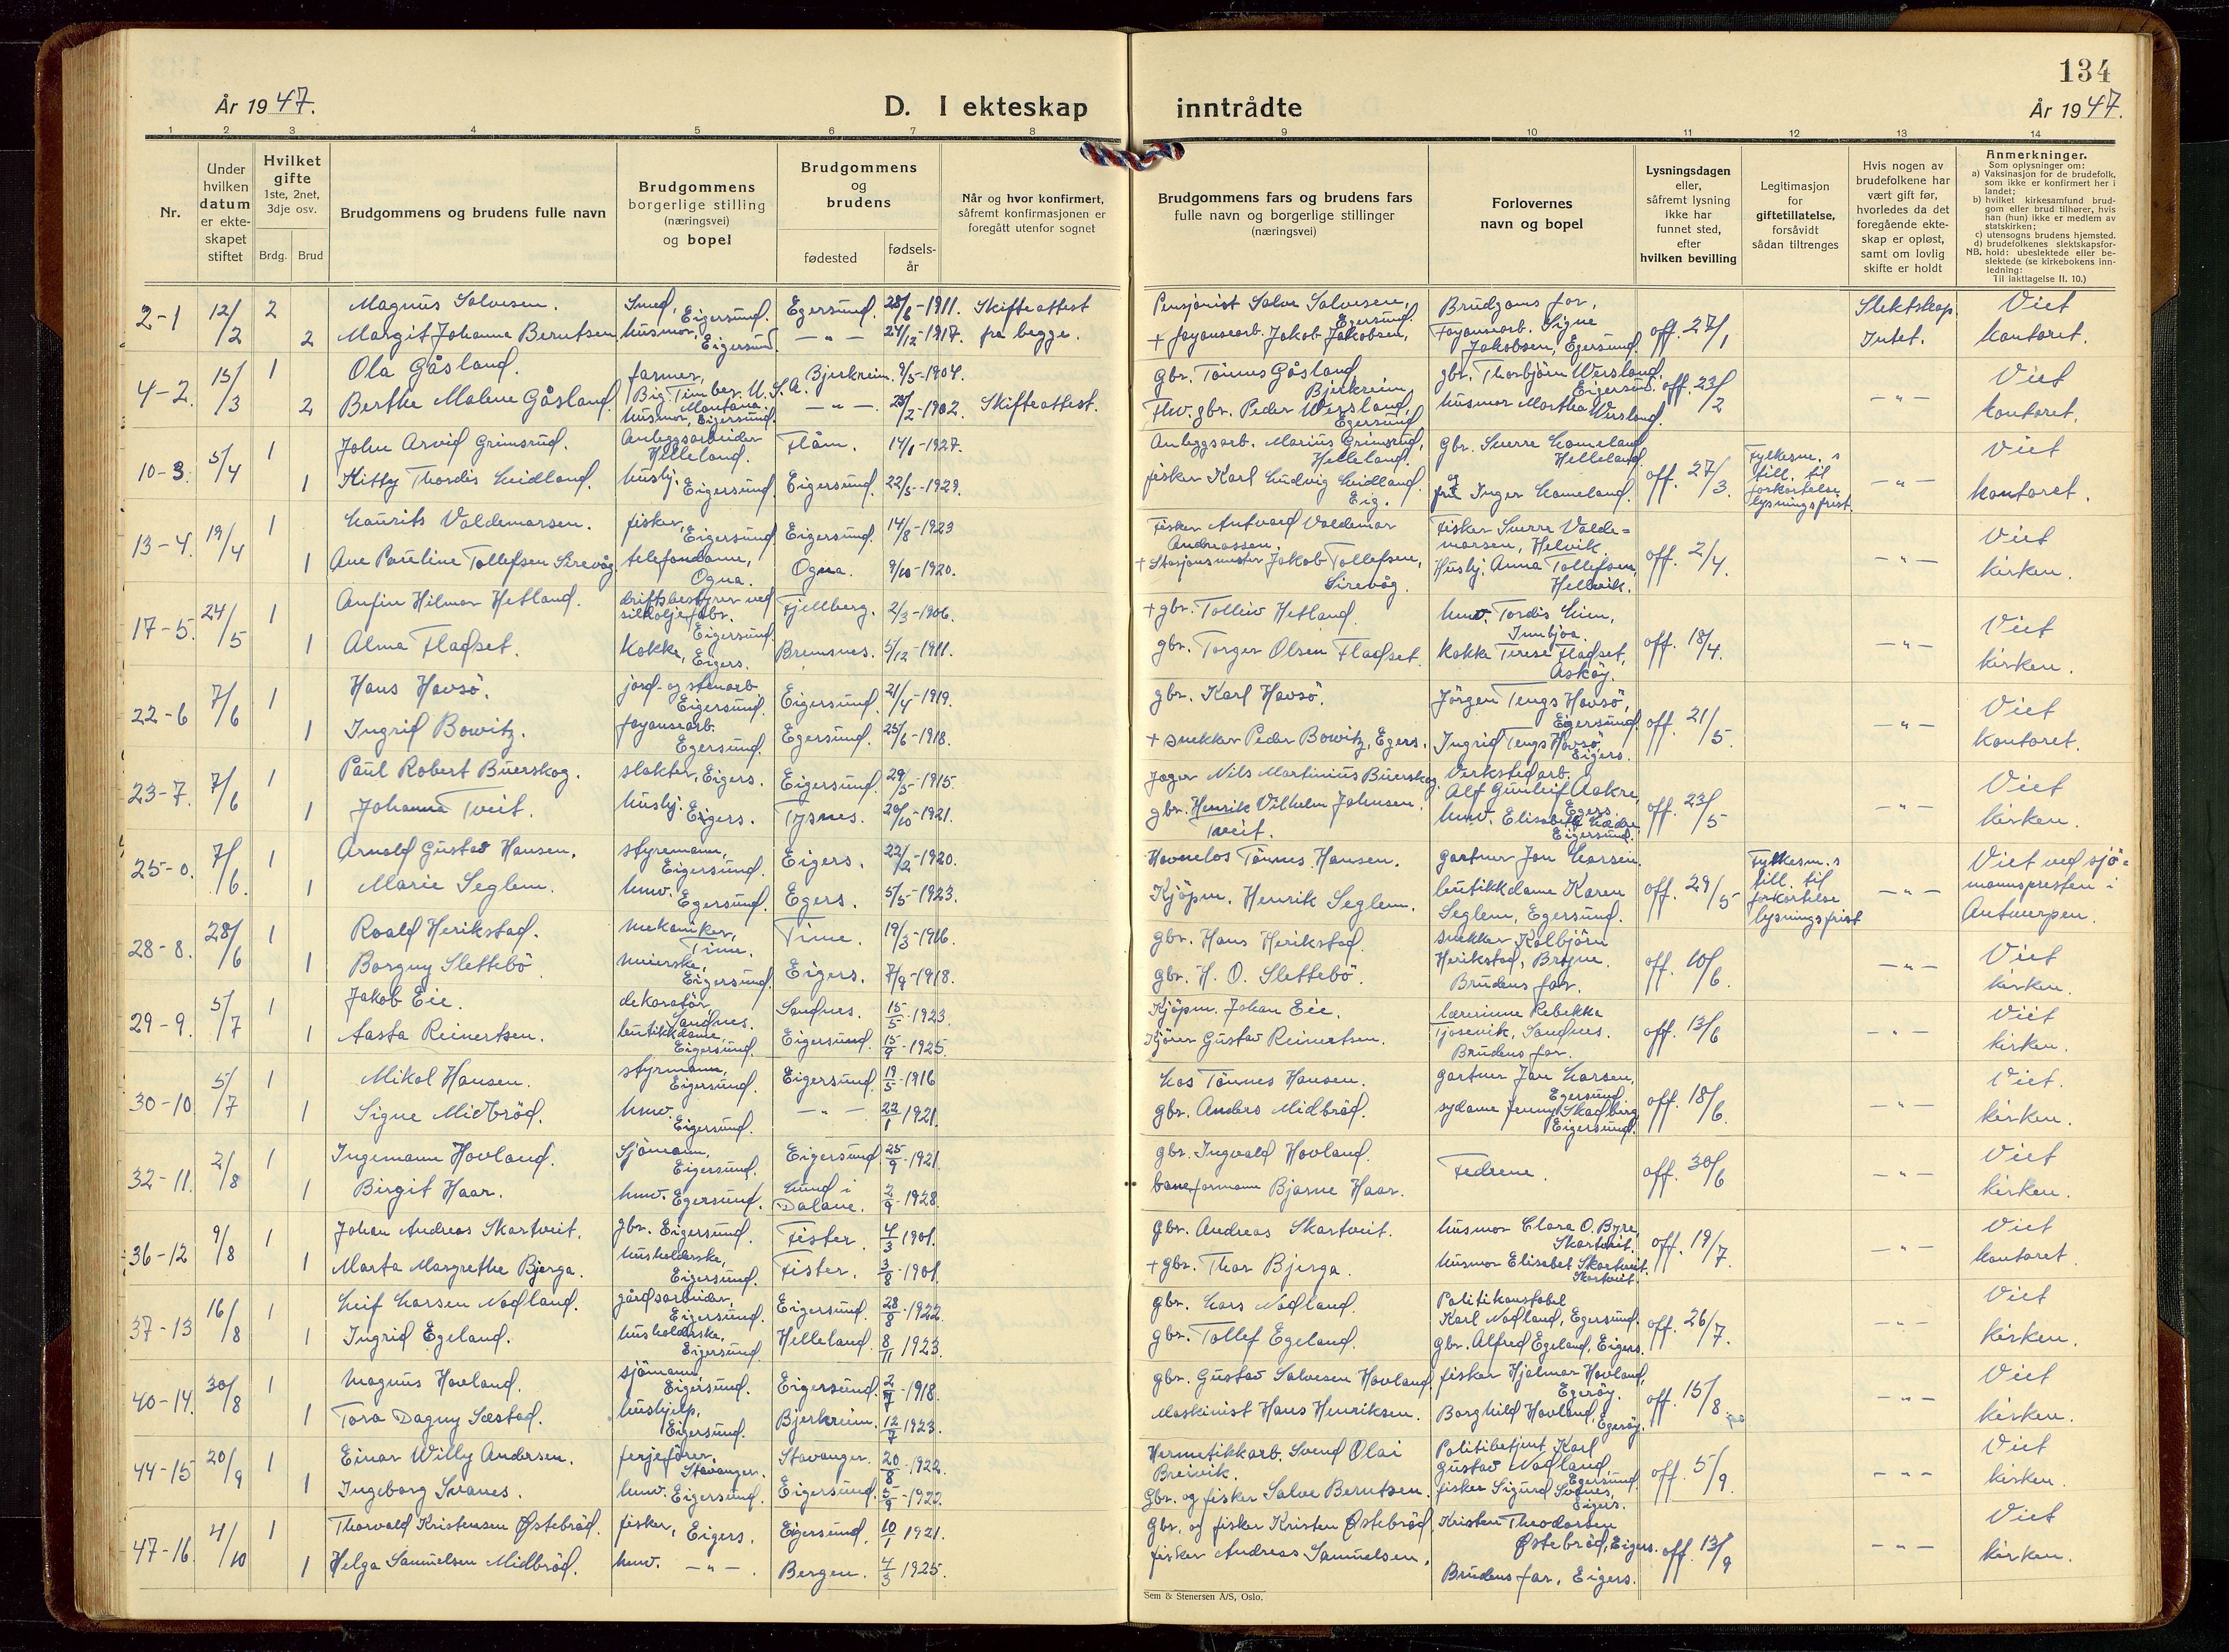 134
År 1947.
D. I ekteskap inntrådte
År 1947.
1 2 3 4 5 6 7 8 9 10 11 12 13 14
Nr.
Under hvilken datum er ekteskapet stiftet
Hvilket gifte 1ste, 2net, 3dje osv.
Brdg. Brud
Brudgommens og brudens fulle navn
Brudgommens borgerlige stilling (næringsvei) og bopel
Brudgommens og brudens
fødested
fødselsår
Når og hvor konfirmert, såfremt konfirmasjonen er foregått utenfor sognet
Brudgommens fars og brudens fars fulle navn og borgerlige stillinger (næringsvei)
Forlovernes navn og bopel
Lysningsdagen eller, såfremt lysning ikke har funnet sted, efter hvilken bevilling
Legitimasjon for giftetillatelse, forsåvidt sådan tiltrenges
Hvis nogen av brudefolkene har vært gift før, hvorledes da det foregående ekteskap er opløst, samt om lovlig skifte er holdt
Anmerkninger.
Som oplysninger om:
a) Vaksinasjon for de brudefolk, som ikke er konfirmert her i landet;
b) hvilket kirkesamfund brudgom eller brud tilhører, hvis han (hun) ikke er medlem av statskirken;
c) utensogns brudens hjemsted.
d) brudefolkenes slektskapsforhold: ubeslektede eller beslektede (se kirkebokens innledning:
NB.
Til iakttagelse II. 10.)
2-1 12/2 2 Magnus Salvesen. Smed, Eigersund. Egersund. 28/6-1911. Skifteattest Pensjonist Salve Salvesen, Egersund. Brudgoms far, off. 27/1 Slektskap Viet
2 Margit Johanne Berntsen husmor, Eigersund. -"- 24/12-1917. fra begge. + fayansearb. Jakob Jakobsen, Fayansearb. Signe Jakobsen, Egersund. Intet. kontoret.
4-2. 15/3 1 Ola Gåsland. farmer, Big Timber. U.S.A. Montana. Bjerkreim. 9/5-1904. gbr. Tönnes Gåsland Bjerkreim gbr. Thorbjörn Wersland, Eigersund. off. 23/2 Viet
2 Berthe Malene Gåsland. husmor, Eigersund. -"- 23/2-1902. Skifteattest. Fhv. gbr. Peder Wersland, Egersund husmor Martha Wersland. kontoret.
10-3. 5/4 1 John Arvid Grimsrud. Anleggsarbeider Helleland. Flåm. 14/1-1927. Anleggsarb. Marius Grimsrud, Helleland. Gbr. Sverre Lomeland Helleland off. 27/3. Fylkesm.s till. til forkortelse lysningsfrist. -"- Viet
1 Kitty Thordis Leidland. hushj. Eigersund. Eigersund. 22/5-1929. fisker Karl Ludvig Leidland. Eig. og fru Inger Lomeland. kontoret.
13-4. 19/4 1 Laurits Valdemarsen. fisker, Eigersund. Eigersund. 14/8-1923 Fisker Antvard Valdemar Andreassen. Fisker Sverre Valdemarsen, Helvik. off. 2/4. -"- Viet
1 Ane Pauline Tollefsen Sirevåg. telefondame, Ogna. Ogna. 9/10-1920. + Stasjonsmester Jakob Tollefsen, Sirevåg. Hushj. Anna Tollefsen, Hellvik. kirken.
17-5. 24/5 1 Anfin Hilmar Hetland. driftsbestyrer ved sildoljefabr. Eigersund. Fjellberg. 2/3-1906. + gbr. Tolleiv Hetland. hmv. Tordis Lien, Innbjoa. off. 18/4. -"- Viet
1 Alma Fladset. Kokke, Eigers. Bremsnes. 5/12-1911. gbr. Torger Olsen Fladset. kokke Terese Fladset, Askøy. kirken.
22-6 7/6 1 Hans Havsö. jord- og stenarb. Eigersund. Eigersund. 21/4-1919. gbr. Karl Havsö. Jörgen Tengs Havsö, Eigersund. off. 21/5. -"- Viet
1 Ingrid Bowitz. fayansearb. Egersund. Egersund. 25/6-1918. + snekker Peder Bowitz, Egers. Ingrid Tengs Havsö, Eigers. kontoret.
23-7. 7/6 1 Paul Robert Buerskog. slakter, Eigers. Eigersund. 29/5-1915. Jager Nils Martinius Buerskog. Verkstedarb. Alf Gunleif Aakre, Egers. off. 23/5 -"- Viet
1 Johanna Tveit. hushj. Eigers. Tysnes. 20/10-1921. gbr. Henrik Vilhelm Johnsen Tveit. hmv. Elisabeth Lædre, Eigersund. kirken.
25-0. 7/6. 1 Arnold Gustav Hansen. styremann, Eigersund. Eigers. 22/2-1920. Havnelos Tönnes Hansen. gartner Jan Larsen. off. 29/5 Fylkesm.s till. til forkortelse lysningsfrist -"- Viet ved sjömannspresten i Antwerpen.
1 Marie Seglem. hmv. Egersund. Egers. 5/5-1923. Kjöpm. Henrik Seglem. butikkdame Karen Seglem, Egersund.
28-8. 28/6 1 Roald Herikstad. mekaniker, Time. Time. 19/3-1916. gbr. Hans Herikstad. snekker Kolbjörn Herikstad, Bryne. off. 10/6. -"- Viet
1 Borgny Slettebö meierske, Eigersund. Eigers. 7/9-1918. gbr. H. O. Slettebö. Brudens far. kirken.
29-9. 5/7 1 Jakob Eie. dekoratör, Sandnes. Sandnes. 15/5-1923. Kjöpm. Johan Eie. lærerinne Rebekke Tjosevik, Sandnes. off. 13/6 -"- Viet
1 Aasta Reinertsen. butikkdame, Eigersund. Eigersund. 15/9-1925. Kjörer Gustav Reinertsen. Brudens far. kirken.
30-10. 5/7 1 Mikal Hansen. styrmann, Eigersund. Eigersund. 19/5-1916 Los Tönnes Hansen. gartner Jan Larsen, Egersund. off. 18/6. -"- Viet.
1 Signe Midbröd. hmv. Eigersund. -"- 22/1 1921. gbr. Anders Midbröd. sydame Jenny Skadberg Eigersund. kirken.
32-11. 2/8 1 Ingemann Hovland. Sjömann, Eigersund. Eigersund 25/9-1921. gbr. Ingvald Hovland. Fedrene. off. 30/6 -"- Viet
1 Birgit Haar. hmv. Egersund. Lund i Dalane. 2/9-1928. baneformann Bjarne Haar. kirken.
36-12 9/8 1 Johan Andreas Skartveit. gbr. Eigersund. Fister. 4/3 1901. gbr. Andreas Skartveit. husmor Clara O. Byre, Skartveit. off. 19/7. -"- Viet
1 Marta Margrethe Bjerga. husholderske, Eigersund. Fister. 3/8-1901. + gbr. Thor Bjerga. husmor Elisabet Skartveit. Skartveit. kontoret.
37-13 16/8 1 Leif Larsen Nodland. gårdsarbeider, Eigersund. Eigersund. 28/8-1922. gbr. Lars Nodland. Politikonstabel Karl Nodland, Egersund. off. 26/7. -"- Viet
1 Ingrid Egeland. husholderske, Eigersund. Helleland. 8/11 1923. gbr. Tollef Egeland. gbr. Alfred Egeland, Eigers. kirken.
40-14. 30/8 1 Magnus Hovland. sjömann Eigersund. Eigersund. 2/7-1918. gbr. Gustav Salvesen Hovland fisker Hjalmar Hovland, Egeröy. off. 15/8. -"- Viet
1 Tora Dagny Sæstad. hushjelp, Eigersund. Bjerkreim. 12/7 1923. Maskinist Hans Henriksen. Borghild Hovland, Egeröy. kirken.
44-15 20/9 1 Einar Willy Andersen. ferjeförer, Stavanger. Stavanger. 20/8-1922. Hermetikkarb. Svend Olai Breivik. Politibetjent Karl Gustav Nodland, Egersund. off. 5/9. -"- Viet
1 Ingeborg Svanes. hmv. Eigersund. Eigersund. 5/9-1922. Gbr. og fisker Salve Berntsen. fisker Sigurd Svanes, Eigers. kirken.
47-16. 4/10 1 Thorvald Kristensen Østebröd. fisker, Eigers. Eigersund. 10/1 1921. Gbr. og fisker Kristen Østebröd. Kristen Theodorsen Østebröd, Eigers. off. 13/9 -"- Viet
1 Helga Samuelsen Midbröd. hmv. -"-. Bergen. 4/3 1925. fisker Andreas Samuelsen. Brudens far, Eigers. kirken.
Sem & Stenersen A/S, Oslo.